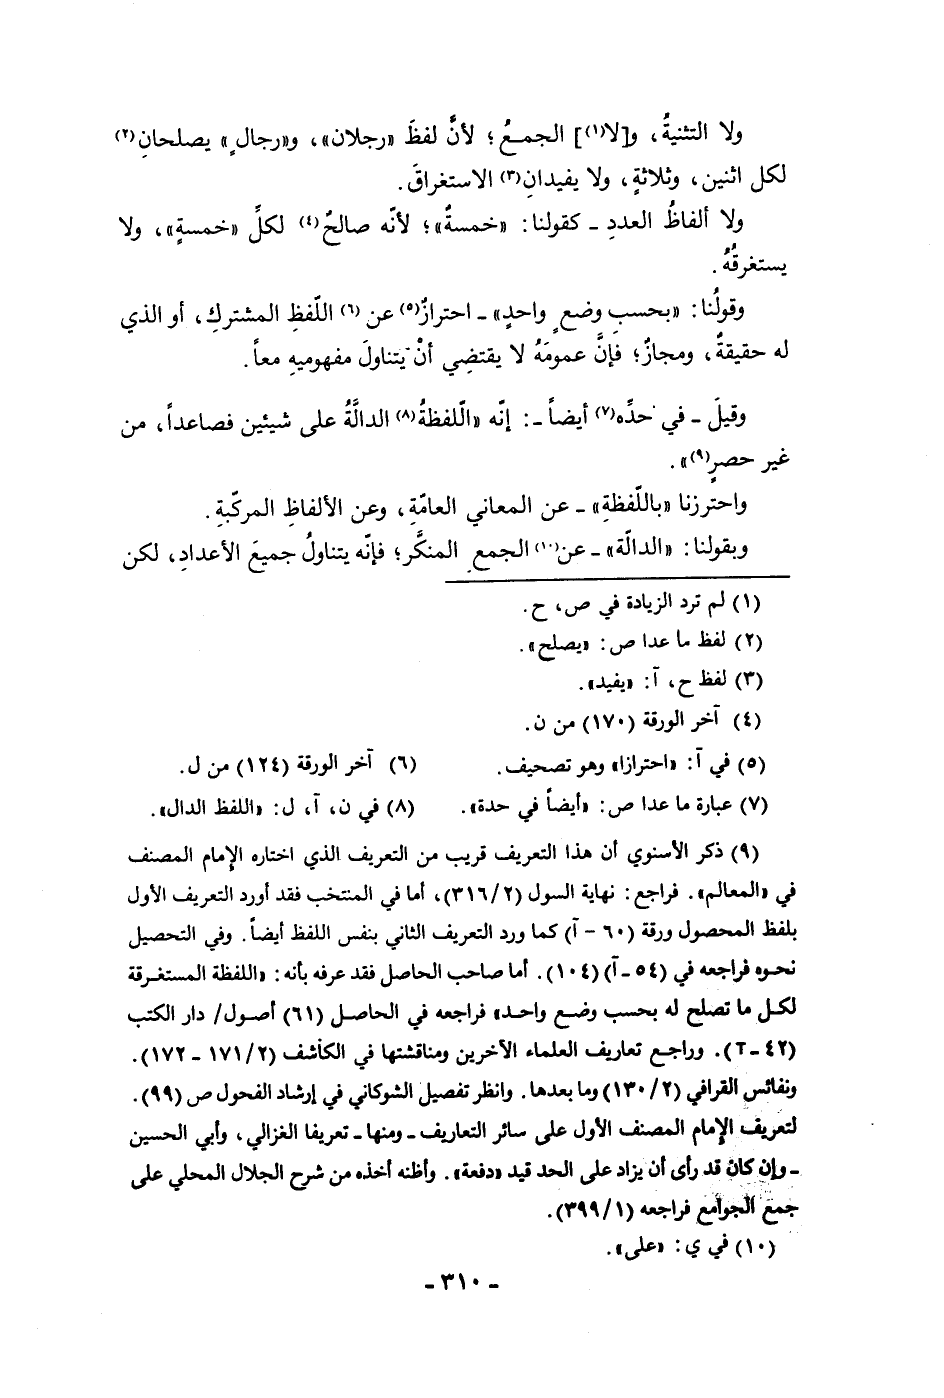 ولا التثنيةُ، و[لا(١)] الجمعُ؛ لأنَّ لفظَ «رجلان»، و«رجال» يصلحانِ(٢)
لكل اثنين، وثلاثةٍ، ولا يفيدانِ(٣) الاستغراقَ.
ولا ألفاظُ العددِ ـ كقولنا: «خمسةٌ»؛ لأنّه صالحٌ(٤) لكلِّ «خمسةٍ»، ولا
يستغرقُهُ.
وقولُنا: «بحسبِ وضعٍ واحدٍ» ـ احترازٌ(٥) عن(٦) اللّفظِ المشتركِ، أو الذي
له حقيقةٌ، ومجازٌ؛ فإنَّ عمومَهُ لا يقتضِي أنْ يتناولَ مفهوميهِ معاً.
وقيلَ ـ في حدِّه(٧) أيضاً ـ: إنّه «الّلفظةُ(٨) الدالَّةُ على شيئين فصاعداً، من
غير حصرٍ(٩)».
واحترزنا «باللّفظةِ» ـ عن المعاني العامّةِ، وعن الألفاظِ المركّبةِ.
وبقولنا: «الدالّة» ـ عن(١٠) الجمعِ المنكَّر؛ فإنّه يتناولُ جميعَ الأعدادِ، لكن
(١) لم ترد الزيادة في ص، ح.
(٢) لفظ ما عدا ص: «يصلح».
(٣) لفظ ح، آ: «يفيد».
(٤) آخر الورقة (١٧٠) من ن.
(٥) في آ: «احترازا» وهو تصحيف. (٦) آخر الورقة (١٢٤) من ل.
(٧) عبارة ما عدا ص: «أيضاً في حدة». (٨) في ن، آ، ل: «اللفظ الدال».
(٩) ذكر الأسنوي أن هذا التعريف قريب من التعريف الذي اختاره الإمام المصنف
في «المعالم». فراجع: نهاية السول (٣١٦/٢)، أما في المنتخب فقد أورد التعريف الأول
بلفظ المحصول ورقة (٦٠ - آ) كما ورد التعريف الثاني بنفس اللفظ أيضاً. وفي التحصيل
نحوه فراجعه في (٥٤ ـ آ) (١٠٤). أما صاحب الحاصل فقد عرفه بأنه: «اللفظة المستغرقة
لكل ما تصلح له بحسب وضع واحد» فراجعه في الحاصل (٦١) أصول/ دار الكتب
(٤٢ ـ T). وراجع تعاريف العلماء الآخرين ومناقشتها في الكاشف (١٧١/٢ ـ ١٧٢).
ونفائس القرافي (١٣٠/٢) وما بعدها. وانظر تفصيل الشوكاني في إرشاد الفحول ص (٩٩).
لتعريف الإمام المصنف الأول على سائر التعاريف ـ ومنها ـ تعريفا الغزالي، وأبي الحسين
ـ وإن كان قد رأى أن يزاد على الحد قيد «دفعة». وأظنه أخذه من شرح الجلال المحلي على
جمع الجوامع فراجعه (٣٩٩/١).
(١٠) في ي: «على».
ـ ٣١٠ ـ